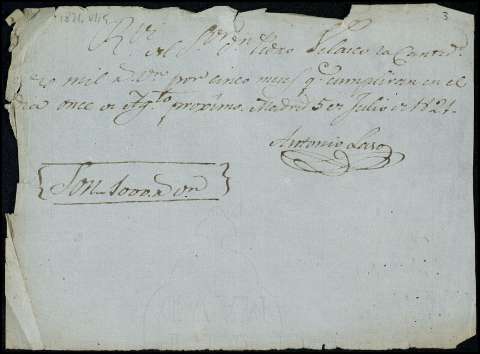 3
Rvi
del Sr Dn Pedro Velasco la Cantd.
de mil rs vn por cinco mess q.e cumpliran en el
dia once de Agto proximo. Madrid 5 de Julio de 1824.
Antonio Laso
Son 1000 rs vn